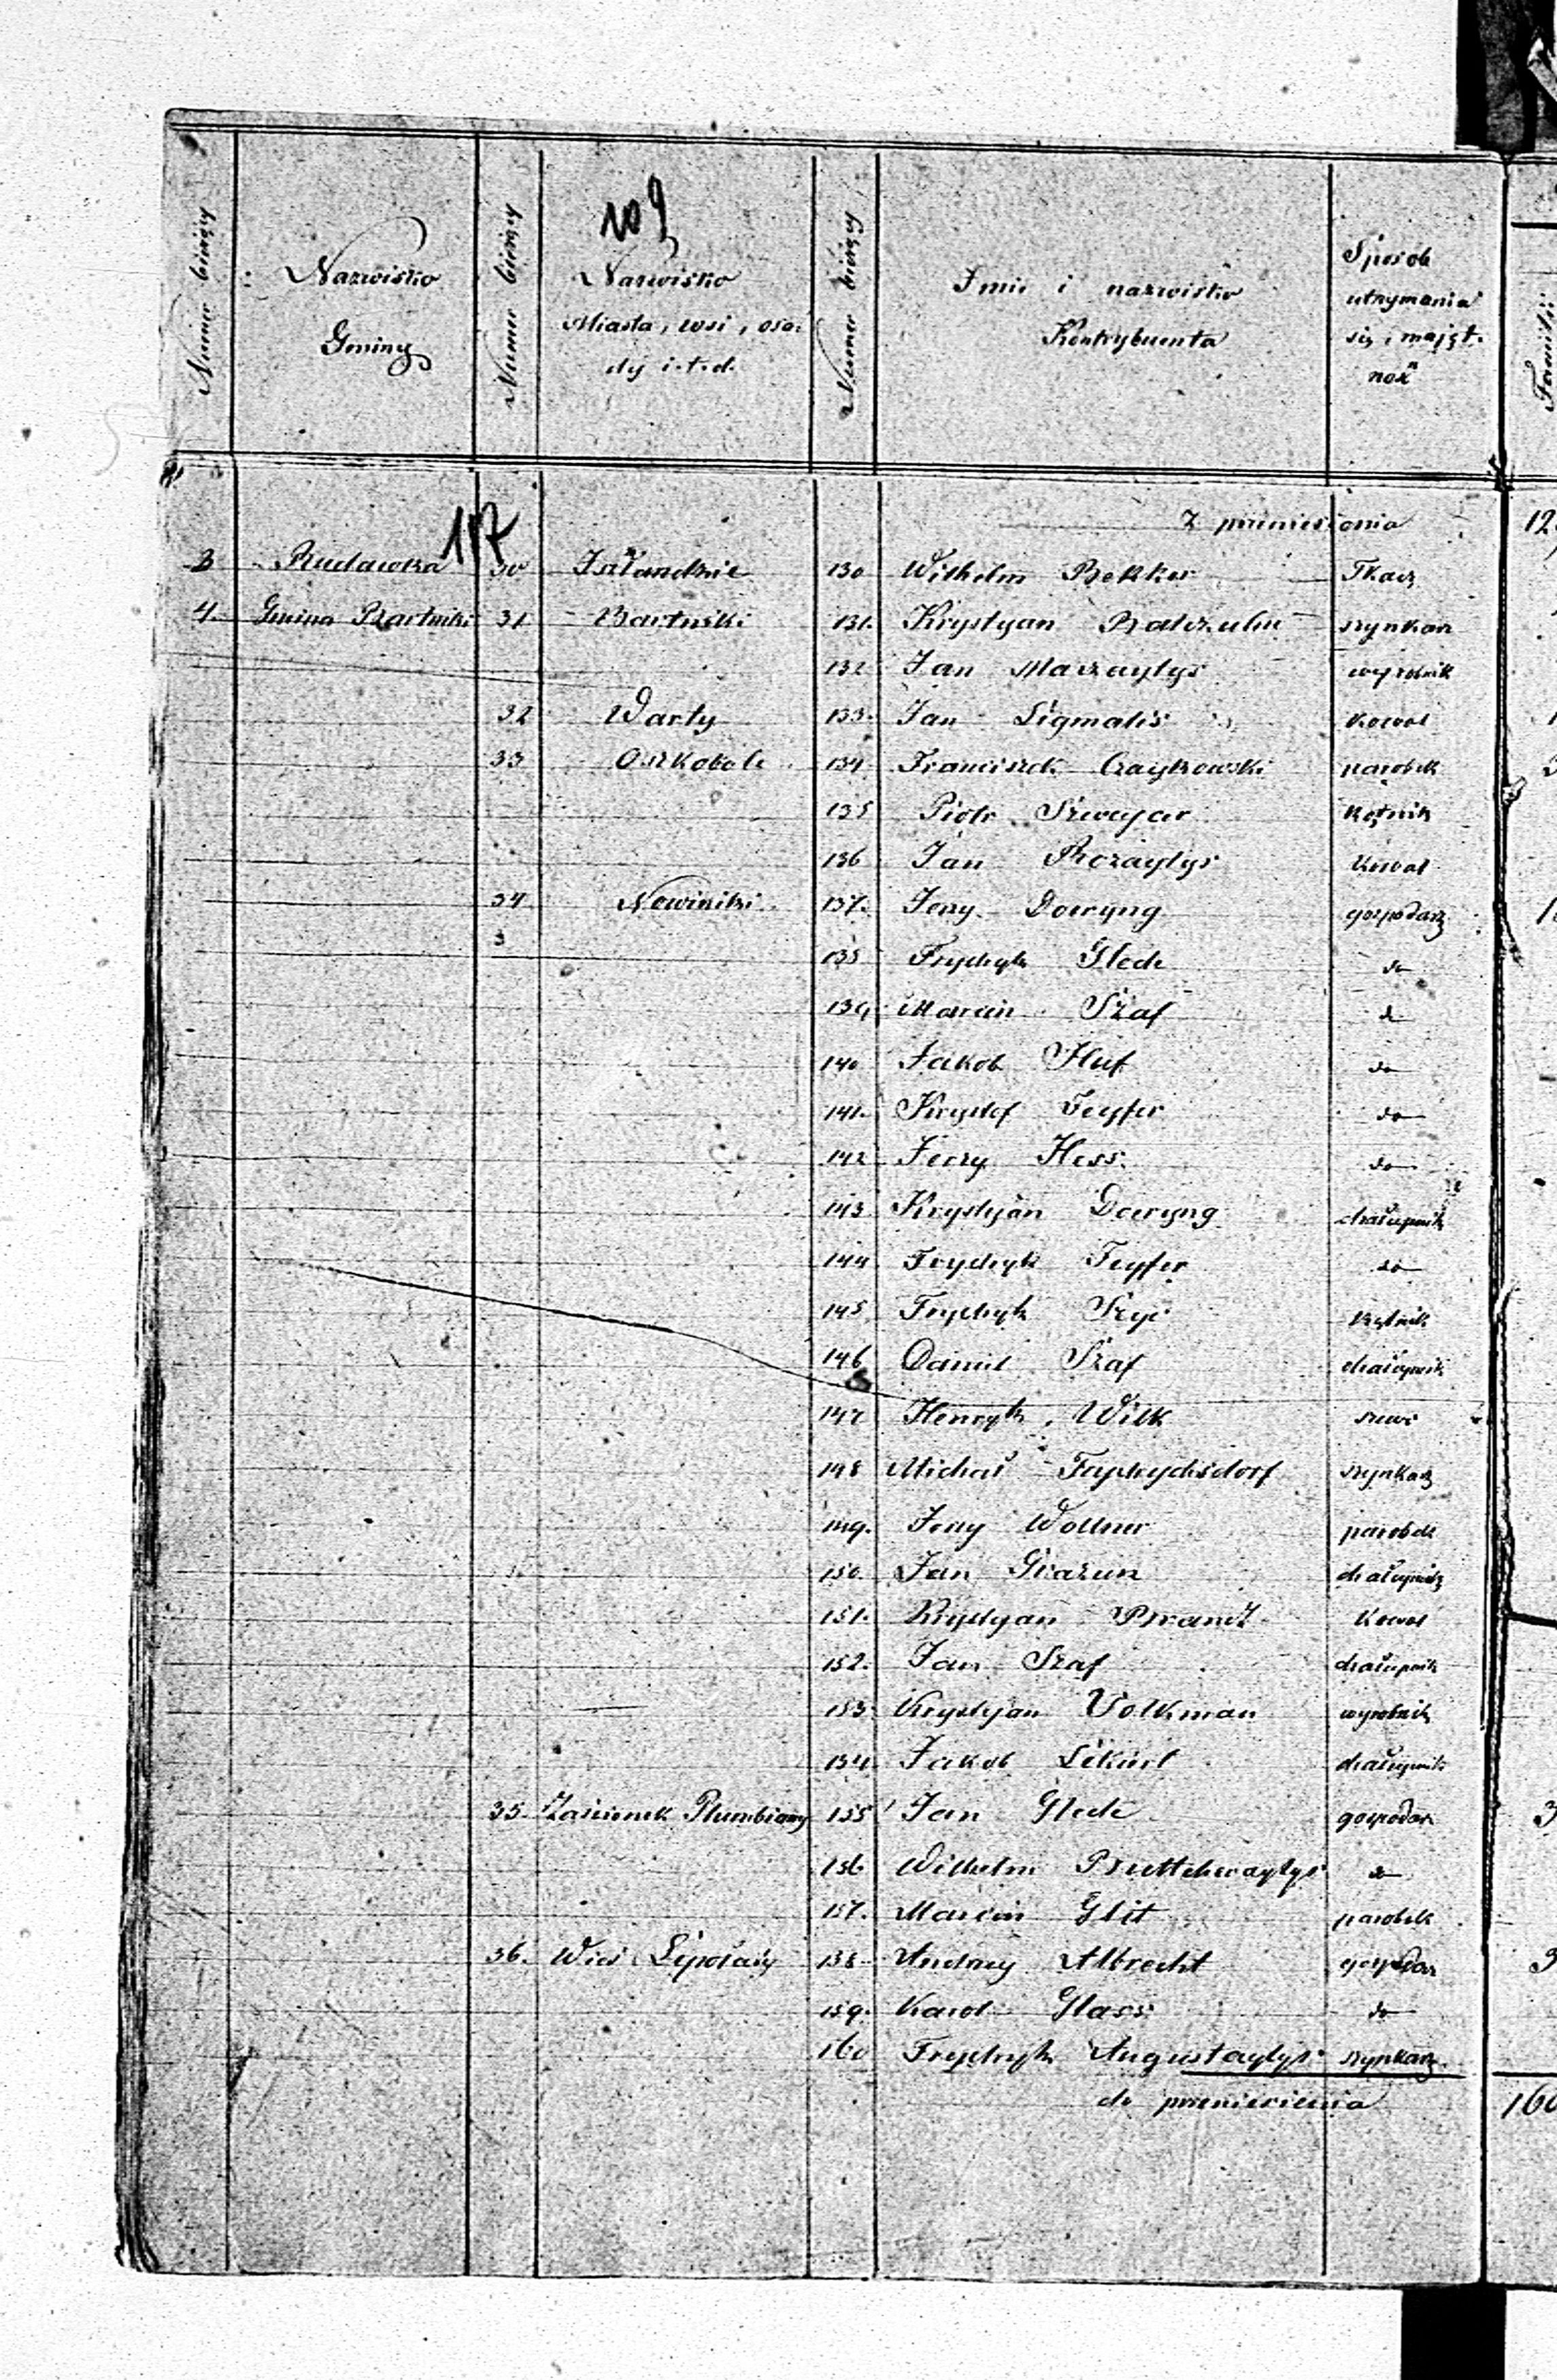 109
Numer bieżący Nazwisko Gminy Numer bieżący Nazwisko Miasta, wsi, osady i.t.d. Numer bieżący Imie i nazwisko Kontrybuenta Sposób utrzymania się i majętność Familii
117
z przeniesienia 12
3 Rudawka 30 Iszlandzie 130 Wilhelm Bekker Tkacz
4. Gmina Bartniki 31 Bartniki 131. Krystyan Balczulin szynkarz
132 Jan Marzaytys wyrobnik
32 Warty 133. Jan Ligmalis Kowal
33 Oszkobole 134 Franciszek Czaykowski parobek 3
135 Piotr Szwaycar Kątnik
136 Jan Rozaytys Kowal
34 Nowiniki 137. Jerzy Dowryng gospodarz
3 138 Frydryk Glede do
139 Marcin Szaf do
140 Jakob Huf do
141. Krystof Feyfer do
142 Jerzy Hess do
143 Krystyan Dowryng chałupnik
144 Frydryk Feyfer do
145 Frydryk Szyc Kątnik
146 Daniel Szaf chałupnik
147 Henryk Wilk szewc
148 Michał szynkarz
149. Jerzy Wollner parobek
150 Jan Grazun chałupnik
151. Krystyan Brandt Kowal
152. Jan Szaf chałupnik
153. Krystyan Volkman wyrobnik
154 Jakob Lekiert chałupnik
35. Zaścianek Plumbiany 155 Jan Glede gospodarz 3
156 Wilhelm Buttcheraytys do
157. Marcin Glit parobek
36. Wieś Lipołaty 158 Andrzey Albrecht gospodarz 3
159. Karol Glass do
160 Frydryk Augustaytys szynkarz
do przeniesienia 160